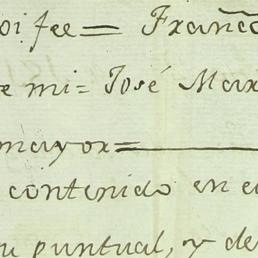 oi fee = Franco
e mi = José Mar
mayor =
contenido en e
u puntual, y de